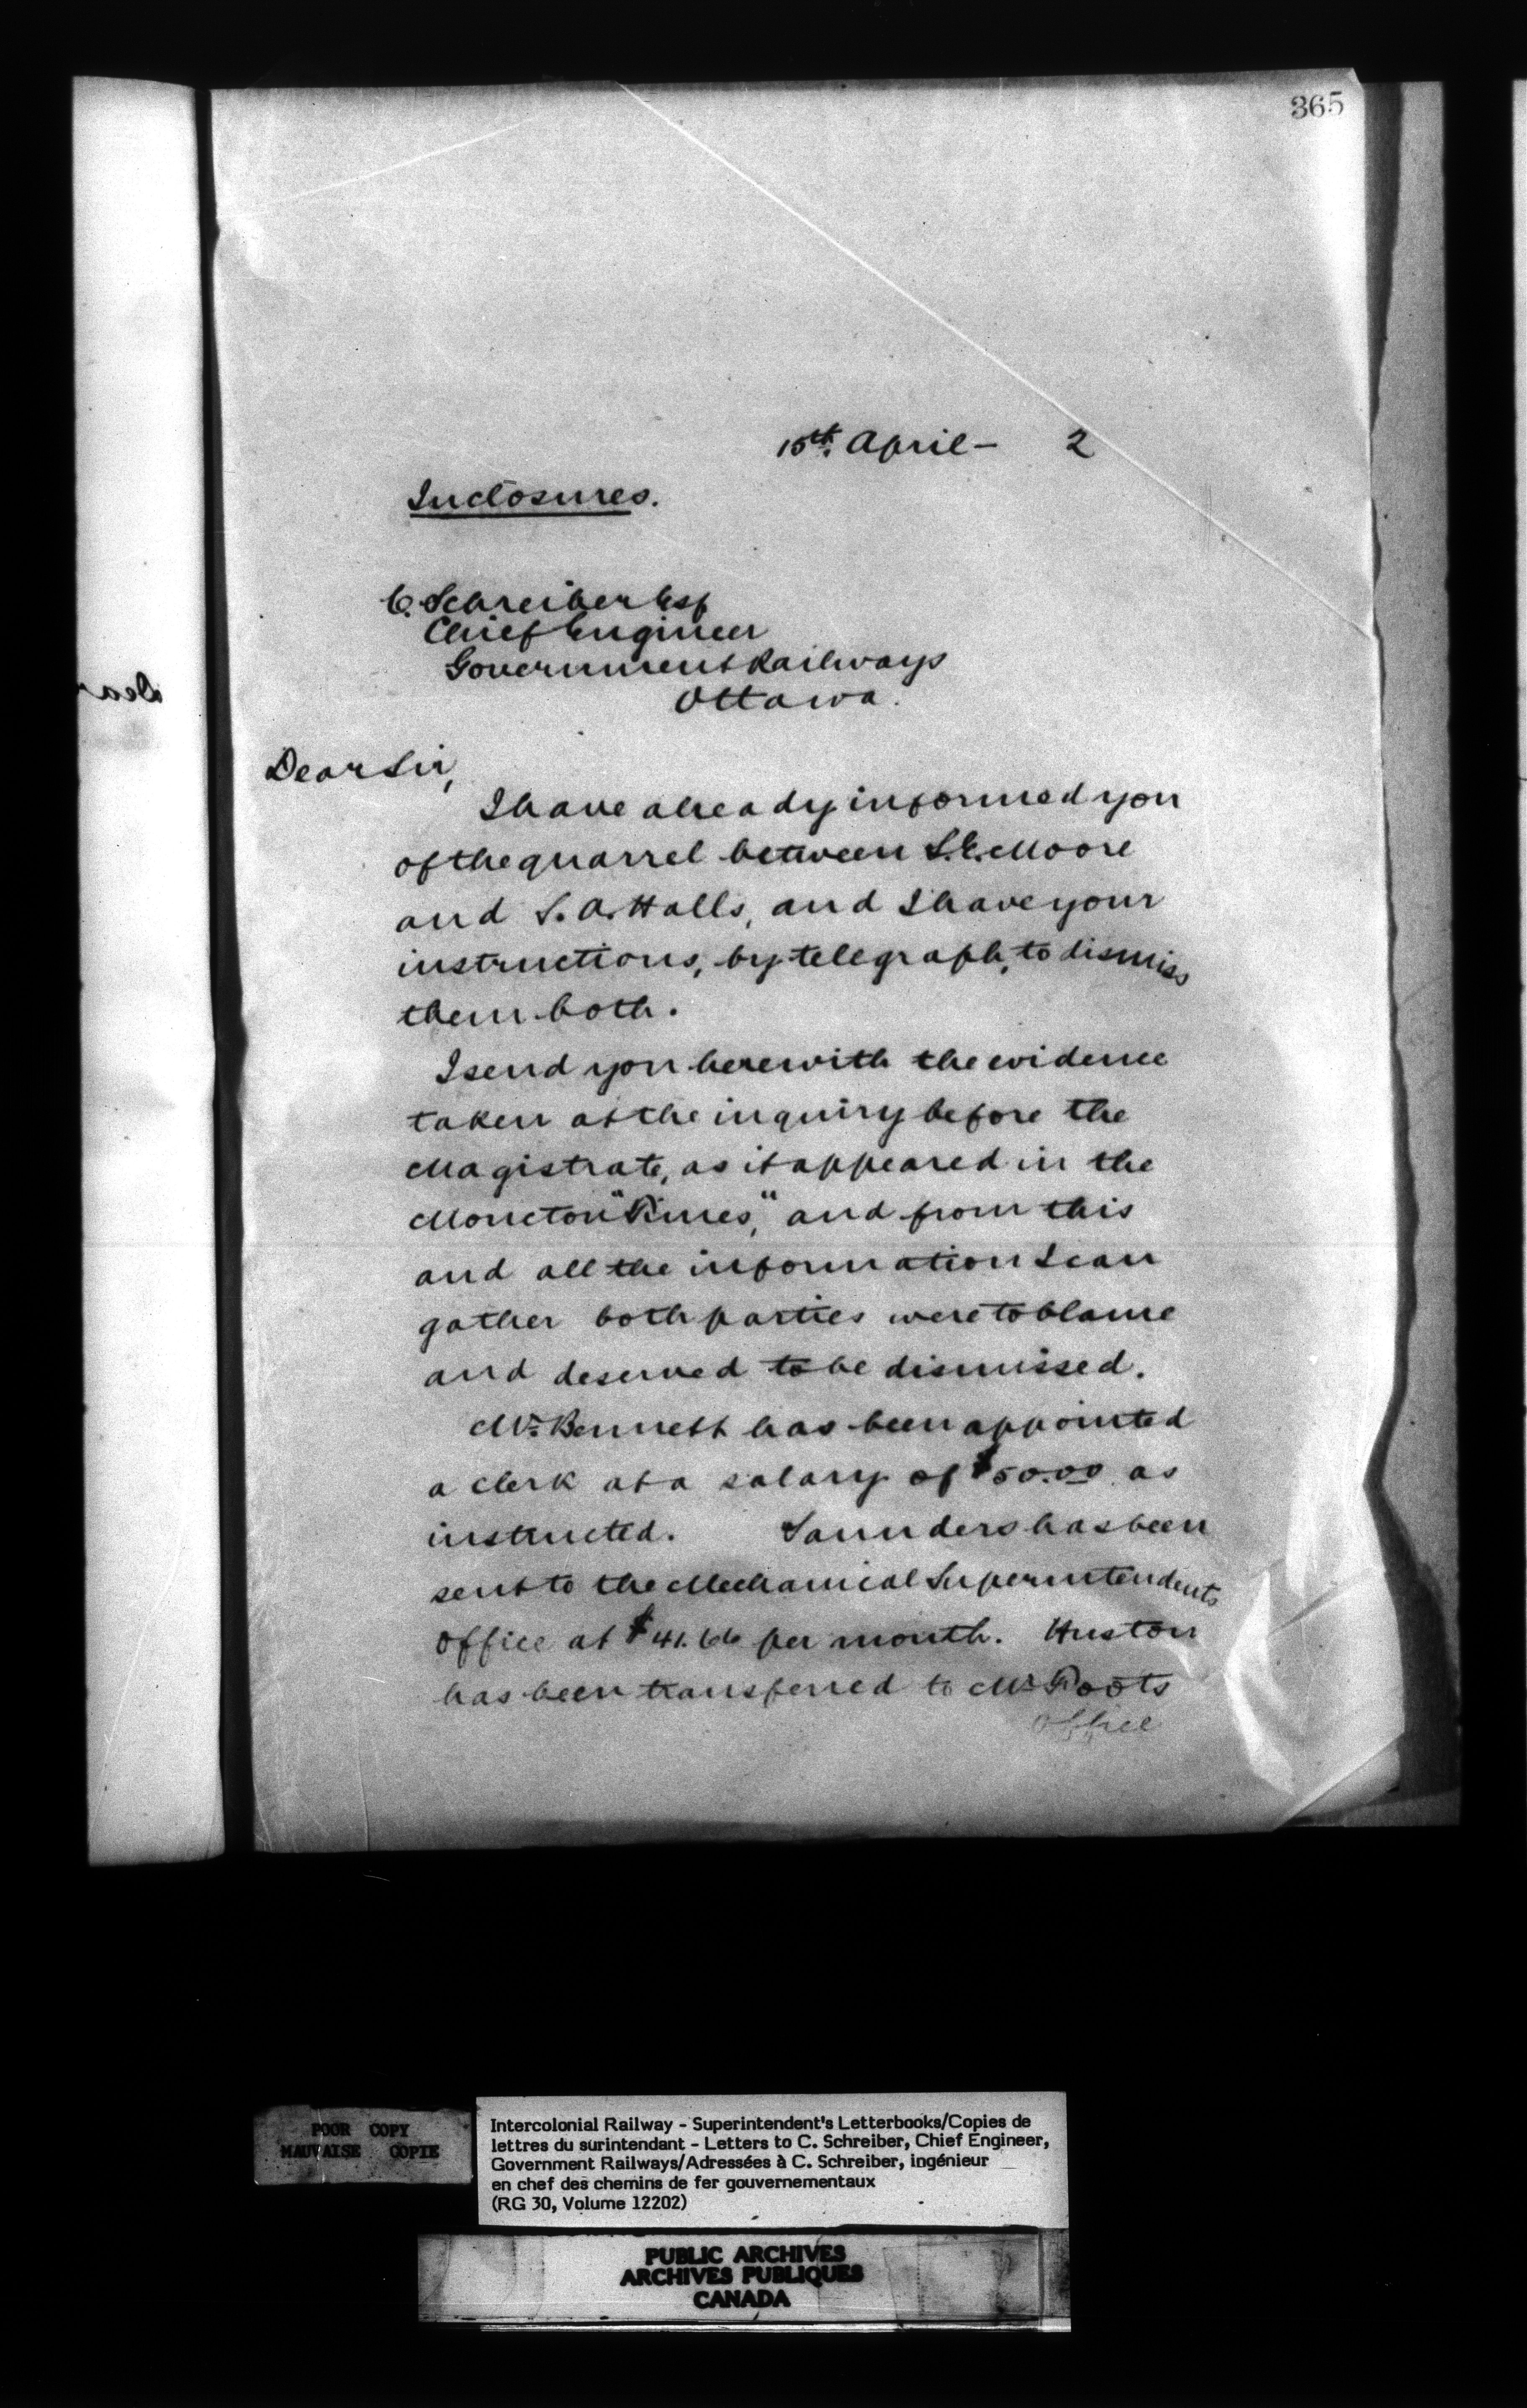 365
15th. April – 2
Inclosures.
C. Schreiber Esq
Chief Engineer
Government Railways
Ottawa.
Dear Sir,
I have already informed you
of the quarrel between S.C. Moore
and S. A. Halls, and I have your
instructions, by telegraph, to dismiss
them both.
I send you herewith the evidence
taken at the inquiry before the
Magistrate, as it appeared in the
Moncton "Times," and from this
and all the information I can
gather both parties were to blame
and deserved to be dismissed.
Mr. Bennett has been appointed
a clerk at a salary of $50.00 as
instructed. Saunders has been
sent to the Mechanical Superintendents
Office at $41.66 per month. Huston
has been transferred to Mr. Foots
Office
Dear
POOR COPY
MAUVAISE COPIE
Intercolonial Railway - Superintendent's Letterbooks/Copies de
lettres du surintendant - Letters to C. Schreiber, Chief Engineer,
Government Railways/Adressées à C. Schreiber, ingénieur
en chef des chemins de fer gouvernementaux
(RG 30, Volume 12202)
PUBLIC ARCHIVES
ARCHIVES PUBLIQUES
CANADA